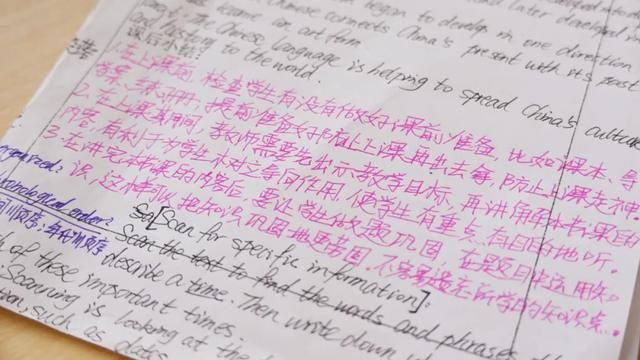 began to develop in one direction
and later developed
connects China's present with its past
became an art form
The Chinese language is helping to spread China's culture
and history to the world.
1. 在上课前，检查学生有没有做好课前准备，比如课本、导
学案、练习册，提前准备好防止上课再出去等，防止上课走神
2. 在上课期间，教师需要先出示教学目标，再讲解本书课后
内容，有利于学生 使学生有重点、有目的地听。
3. 在讲完本书课的内容后，要让学生做题巩固，在题目中运用知
识，这样可以把知识巩固地更牢固。不容易遗忘所学的知识点。
organized:
chronological order:
时间顺序；年代顺序
[Scan for specific information]:
Scan the text to find the words and phrases
describe a time. Then write down
of these important times.
Scanning is looking at the
such as dates